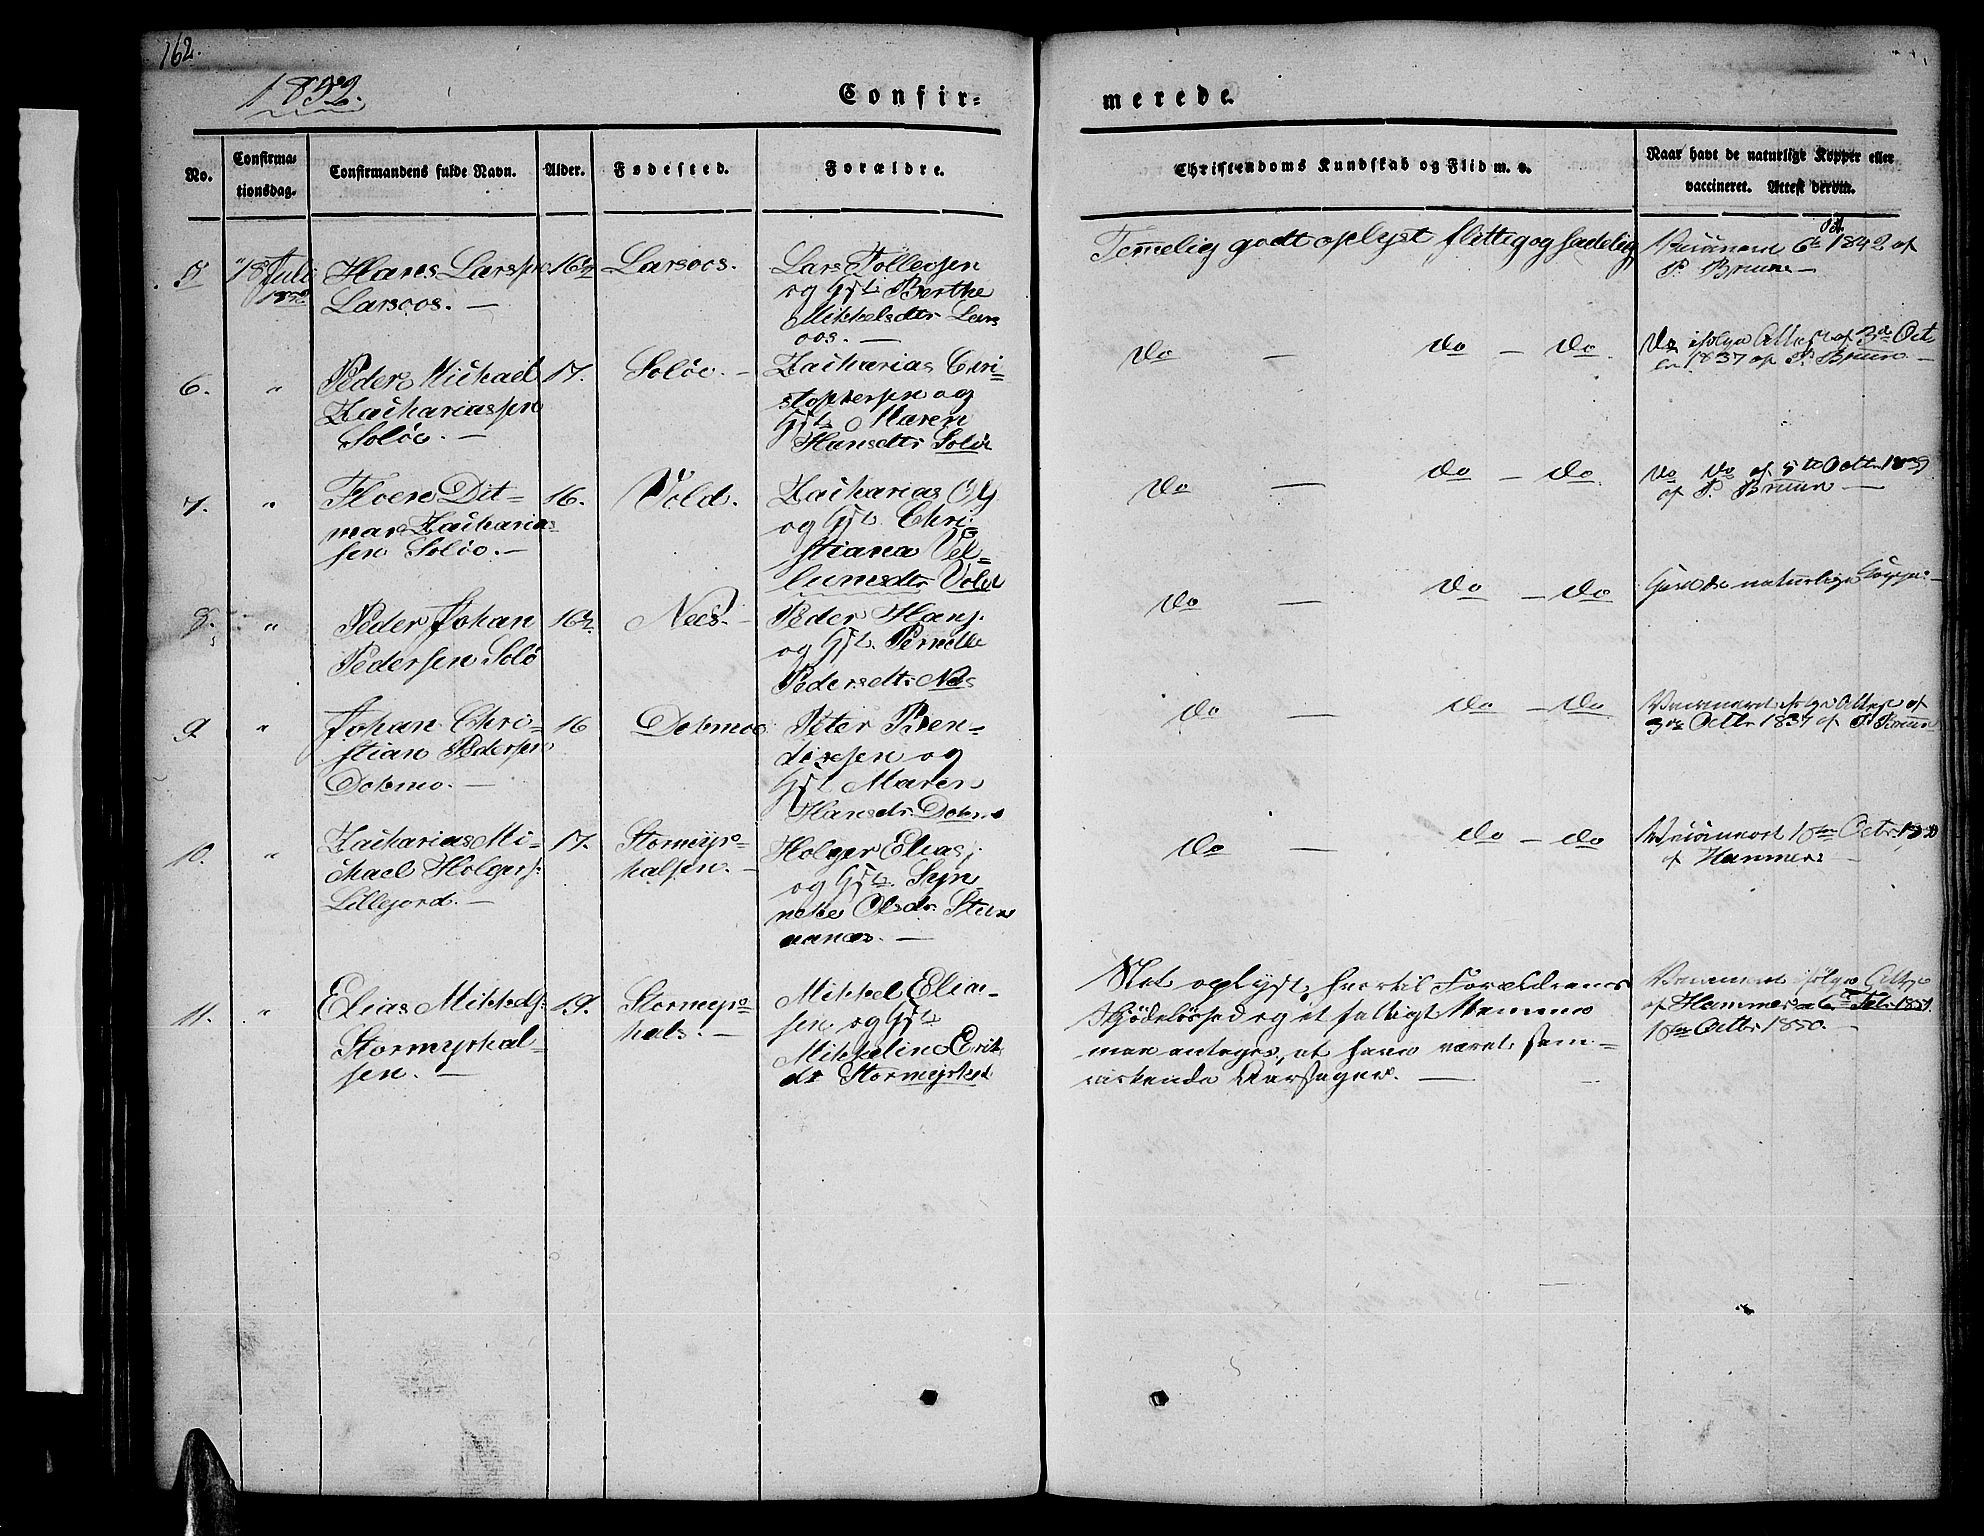 162.
1852.
Confir-
merede.
No.
Confirma-
tionsdag.
Confirmandens fulde Navn.
Alder.
Fødested.
Forældre.
Christendoms Kundskab og Flid m. v.
Naar havt de naturlige Kopper eller
vaccineret. Attest derom.
5
18 Juli
1852
Hans Larssen
Larsoos. —
16½
Larsoos.
Lars Tollefsen
og Hst. Berthe
Mikkelsdtr Lars
oos. —
Temmelig godt oplyst flittig og sædelig
Vaccineret 6te Oct. 1842 af
P. Bruun —
6.
"
Peder Michael
Zachariassen
Soløe. —
17.
Soløe. —
Zacharias Chri-
stophersen og
Hst. Maren
Hansdtr Soløe
do — do — do
do ifølge Attest af 3die Oct
1837 af P. Bruun —
7.
"
Ditmar Zacharia
sen Soløe. —
16.
Vold.
Zacharias
og Hst. Chri-
stiana
Vold
do — do — do
do do af 5te Octbr
af P. Bruun —
8.
"
Peder Johan
Pedersen Solø
16½
Nees. —
Peder Hans.
og Hst. Pernille
Pedersdtr Nes
do — do — do
Havt de naturlige Kopper —
9
"
Johan Chri-
stian Pedersen
Dokmo. —
16
Dokmoe
Peter Ben-
dixsen og
Hst. Maren
Hansdr. Dokmo
do — do — do
Vaccineret ifølge Attest af
3die Octbr 1837 af P. Bruun
10.
"
Zacharias Mi-
chael Holgers.
Lillejord. —
17.
Stormyr-
halsen. —
Holger Elias.
og Hst. Syn
Olsdr.
—
do — do — do
Vaccineret 10de Octbr 1850
af Hammer —
11.
"
Elias Mikkels.
Stormyrhal-
sen. —
19.
Stormyr-
hals. —
Mikkel Elia-
sen og Hst.
Mikkeline Erik
dr Stormyrhals
Slet oplyst, hvortil Forældrenes
Skjødesløshed og et fattigt Nemme
man antages, at have været sam-
virkende Aarsager. —
Vaccineret ifølge Attest
af Hammer 6te Febr 1851
10de Octbr 1850. —